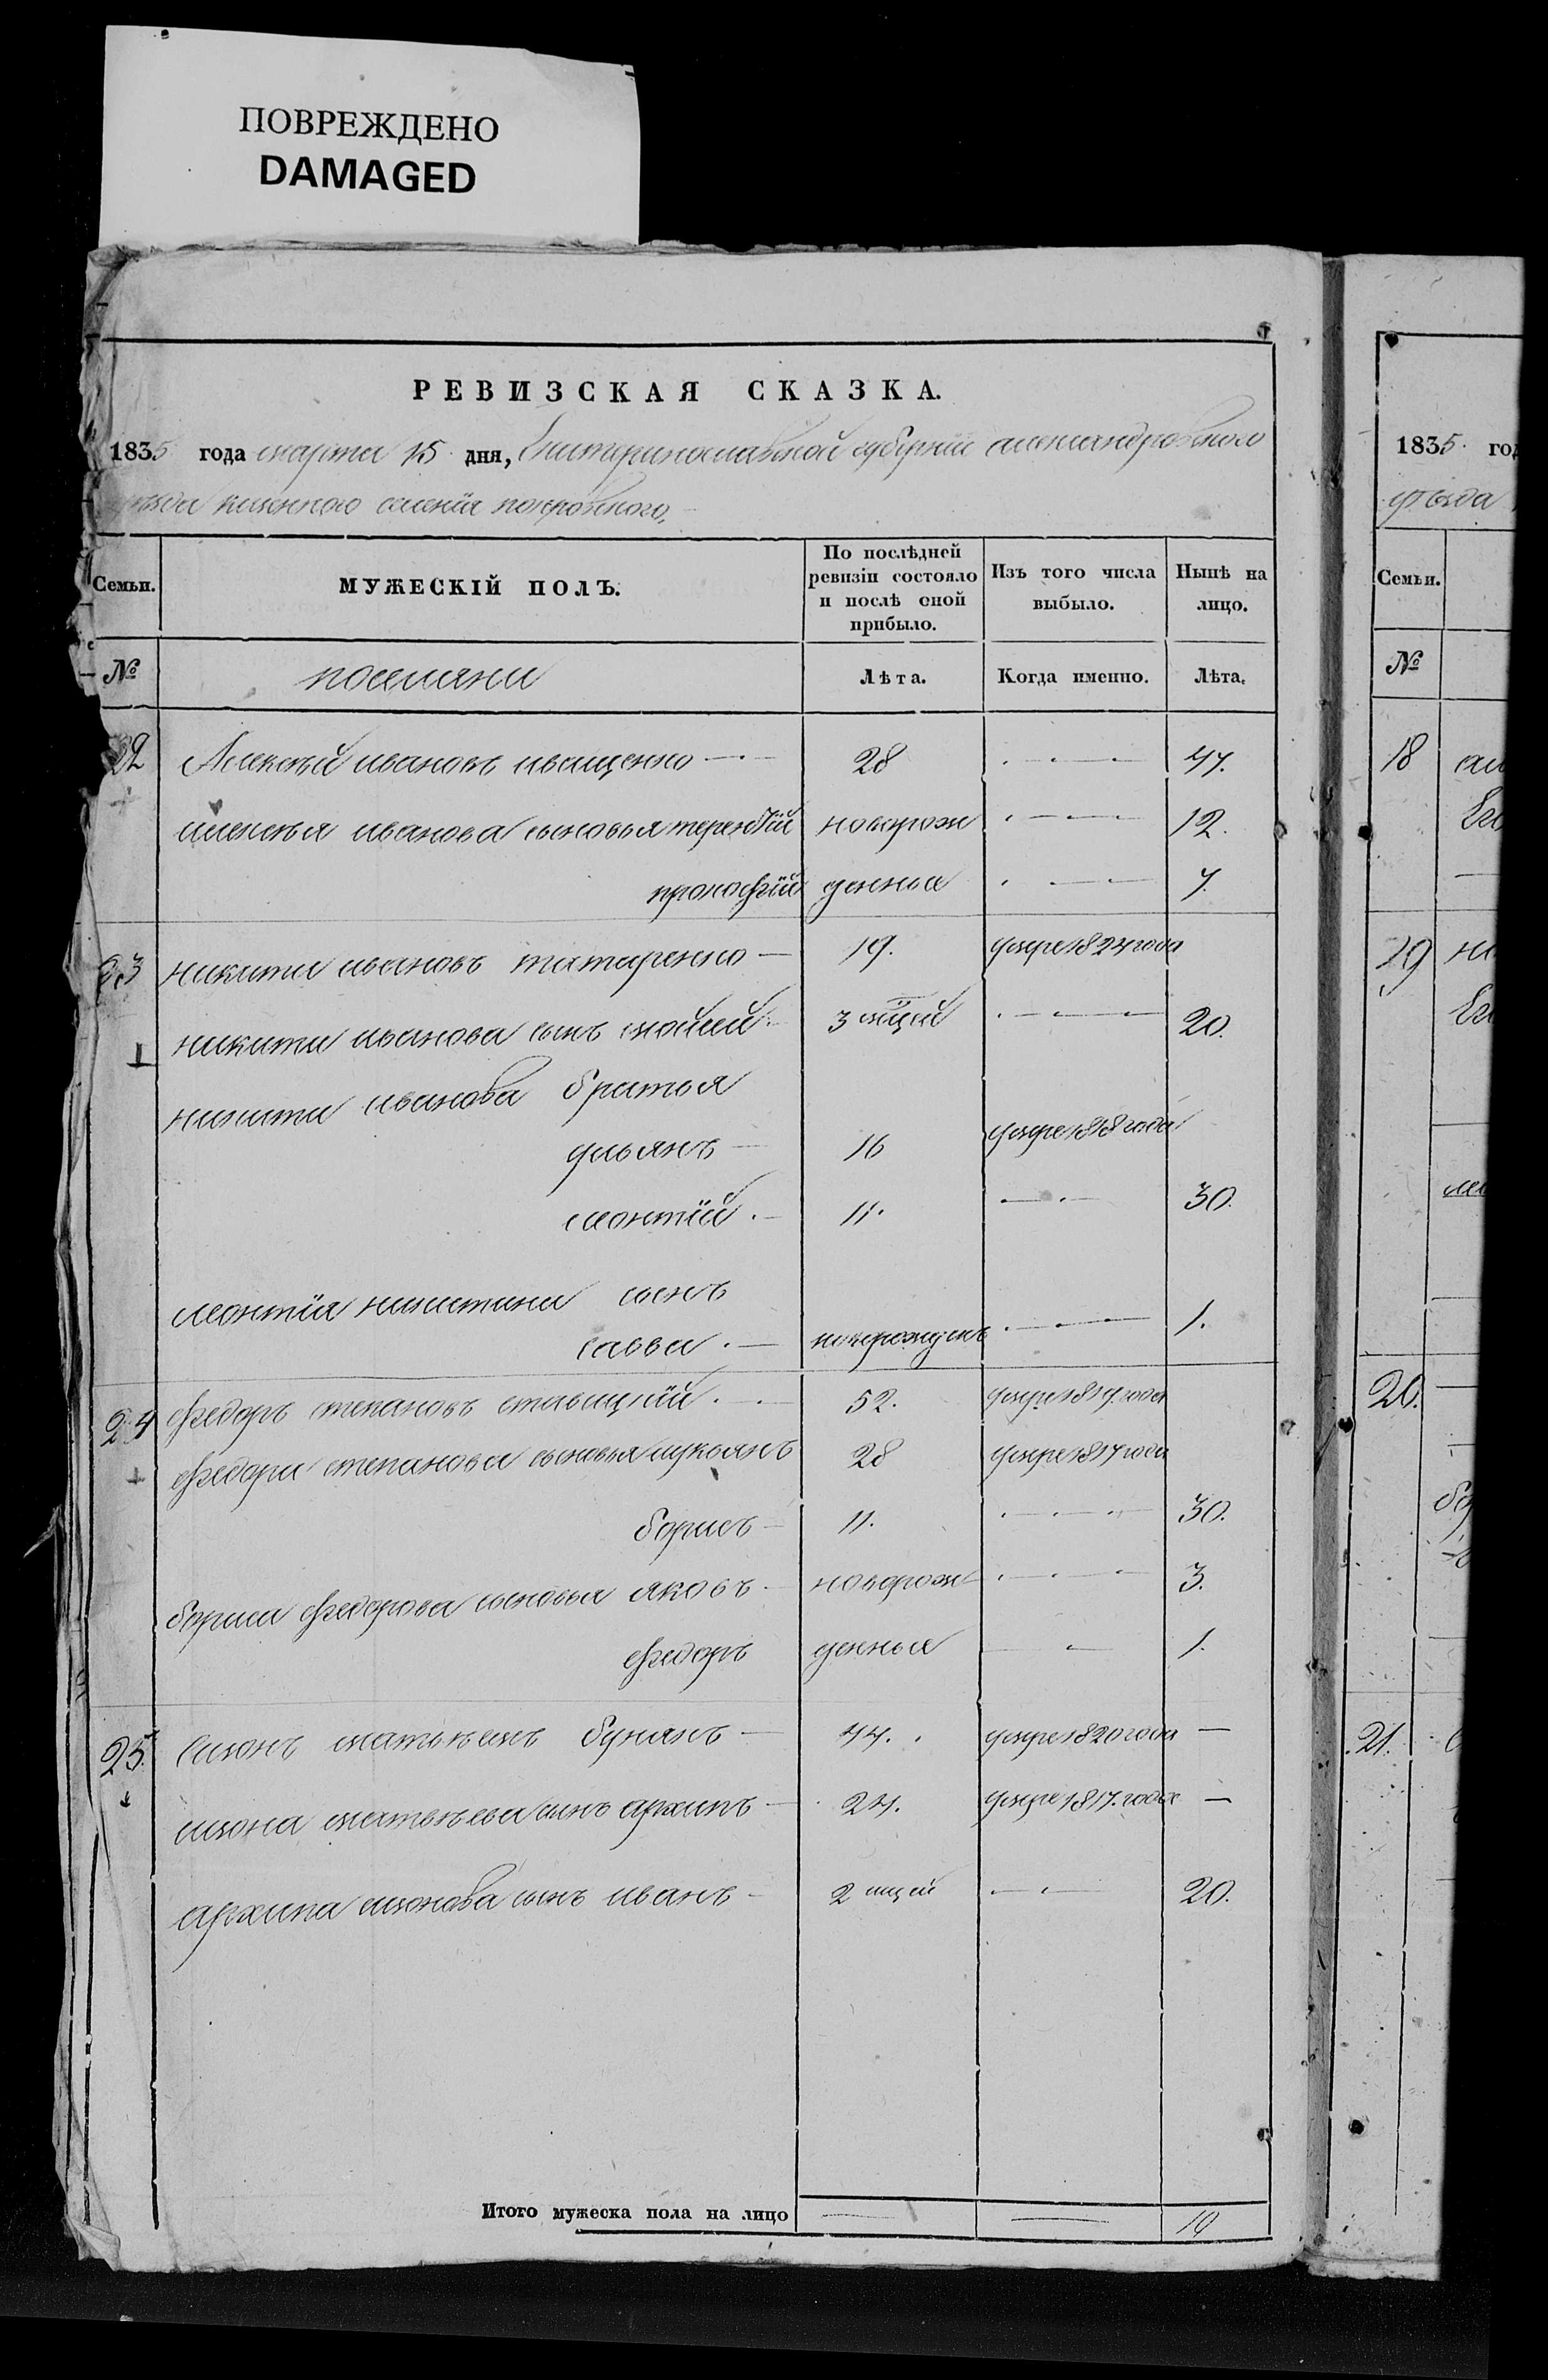 ПОВРЕЖДЕНО
DAMAGED
РЕВИЗСКАЯ СКАЗКА.
1835 года марта 15 дня, Екатеринославской губернiи александровского
уѣзда казенного селенiя покровского.
Семьи. МУЖЕСКIЙ ПОЛЪ. По послѣдней ревизiи состояло и послѣ оной прибыло. Изъ того числа выбыло. Нынѣ на лицо.
№ поселяни Лѣта. Когда именно. Лѣта.
22 Алексѣй ивановъ иващенко 28 47.
алексѣя иванова сыновья терентiй новорож 12.
прокофiй денные 7.
23 никита ивановъ татаренко 19. умре 1824 года
никиты иванова сынъ 3 мцей 20.
никиты иванова братья
ульянъ 16 умре 1818 года
леонтiй 11. 30.
леонтiя никитина сынъ
савва новорожденъ 1.
24 федоръ степановъ ставицкiй 52. умре 1819 года
федора степанова сыновья лукьянъ 28 умре 1817 года
борисъ 11. 30.
бориса федорова сыновья яковъ новорож 3.
федоръ денные 1.
25. симонъ матвѣевъ бунянъ 44. умре 1820 года
симона матвѣева сынъ архипъ 24. умре 1817. года
архипа симонова сынъ иванъ 2 мцей 20.
Итого мужеска пола на лицо 10
1835 год
уѣзда
Семьи.
№
18
19 ни
20.
21.